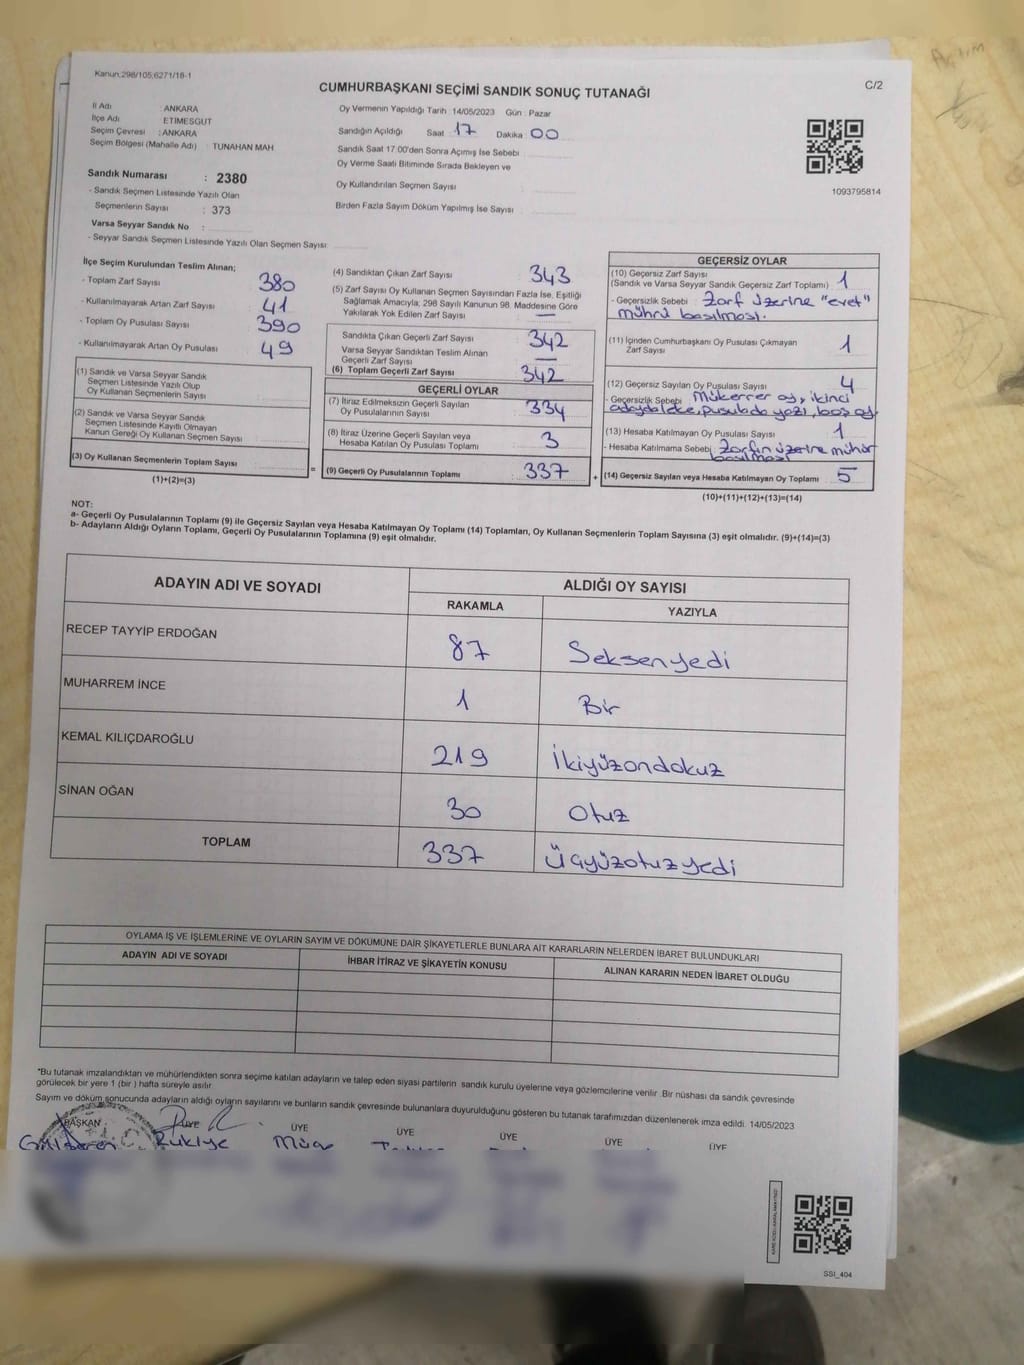 Kanun.298/105,6271/18-1
CUMHURBAŞKANI SEÇİMİ SANDIK SONUÇ TUTANAĞI
C/2
İl Adı : ANKARA
İlçe Adı : ETİMESGUT
Seçim Çevresi : ANKARA
Seçim Bölgesi (Mahalle Adı) : TUNAHAN MAH
Sandık Numarası : 2380
- Sandık Seçmen Listesinde Yazılı Olan
Seçmenlerin Sayısı : 373
Varsa Seyyar Sandık No :
- Seyyar Sandık Seçmen Listesinde Yazılı Olan Seçmen Sayısı
Oy Vermenin Yapıldığı Tarih : 14/05/2023 Gün : Pazar
Sandığın Açıldığı Saat 17 Dakika 00
Sandık Saat 17.00'den Sonra Açımış İse Sebebi
Oy Verme Saati Bitiminde Sırada Bekleyen ve
Oy Kullandırılan Seçmen Sayısı
Birden Fazla Sayım Döküm Yapılmış İse Sayısı
1093795814
İlçe Seçim Kurulundan Teslim Alınan;
- Toplam Zarf Sayısı 380
- Kullanılmayarak Artan Zarf Sayısı 41
- Toplam Oy Pusulası Sayısı 390
- Kullanılmayarak Artan Oy Pusulası 49
(1) Sandık ve Varsa Seyyar Sandık
Seçmen Listesinde Yazılı Olup
Oy Kullanan Seçmenlerin Sayısı
(2) Sandık ve Varsa Seyyar Sandık
Seçmen Listesinde Kayıtlı Olmayan
Kanun Gereği Oy Kullanan Seçmen Sayısı
(3) Oy Kullanan Seçmenlerin Toplam Sayısı
(1)+(2)=(3)
=
(4) Sandıktan Çıkan Zarf Sayısı 343
(5) Zarf Sayısı Oy Kullanan Seçmen Sayısından Fazla İse, Eşitliği
Sağlamak Amacıyla, 298 Sayılı Kanunun 98. Maddesine Göre
Yakılarak Yok Edilen Zarf Sayısı —
Sandıkta Çıkan Geçerli Zarf Sayısı 342
Varsa Seyyar Sandıktan Teslim Alınan
Geçerli Zarf Sayısı —
(6) Toplam Geçerli Zarf Sayısı 342
GEÇERLİ OYLAR
(7) İtiraz Edilmeksizin Geçerli Sayılan
Oy Pusulalarının Sayısı 334
(8) İtiraz Üzerine Geçerli Sayılan veya
Hesaba Katılan Oy Pusulası Toplamı 3
(9) Geçerli Oy Pusulalarının Toplamı 337
+
GEÇERSİZ OYLAR
(10) Geçersiz Zarf Sayısı
(Sandık ve Varsa Seyyar Sandık Geçersiz Zarf Toplamı) 1
- Geçersizlik Sebebi : Zarf üzerine "evet"
mührü basılması.
(11) İçinden Cumhurbaşkanı Oy Pusulası Çıkmayan
Zarf Sayısı 1
(12) Geçersiz Sayılan Oy Pusulası Sayısı 4
- Geçersizlik Sebebi : Mükerrer oy, ikinci
adayda leke, pusulada yazı, boş oy
(13) Hesaba Katılmayan Oy Pusulası Sayısı 1
- Hesaba Katılmama Sebebi : Zarfın üzerine mühür
basılması
(14) Geçersiz Sayılan veya Hesaba Katılmayan Oy Toplamı 5
(10)+(11)+(12)+(13)=(14)
NOT:
a- Geçerli Oy Pusulalarının Toplamı (9) ile Geçersiz Sayılan veya Hesaba Katılmayan Oy Toplamı (14) Toplamları, Oy Kullanan Seçmenlerin Toplam Sayısına (3) eşit olmalıdır. (9)+(14)=(3)
b- Adayların Aldığı Oyların Toplamı, Geçerli Oy Pusulalarının Toplamına (9) eşit olmalıdır.
ADAYIN ADI VE SOYADI
ALDIĞI OY SAYISI
RAKAMLA YAZIYLA
RECEP TAYYİP ERDOĞAN 87 Seksenyedi
MUHARREM İNCE 1 Bir
KEMAL KILIÇDAROĞLU 219 İkiyüzondokuz
SİNAN OĞAN 30 Otuz
TOPLAM 337 Üçyüzotuzyedi
OYLAMA İŞ VE İŞLEMLERİNE VE OYLARIN SAYIM VE DÖKÜMÜNE DAİR ŞİKAYETLERLE BUNLARA AİT KARARLARIN NELERDEN İBARET BULUNDUKLARI
ADAYIN ADI VE SOYADI İHBAR İTİRAZ VE ŞİKAYETİN KONUSU ALINAN KARARIN NEDEN İBARET OLDUĞU
"Bu tutanak imzalandıktan ve mühürlendikten sonra seçime katılan adayların ve talep eden siyasi partilerin sandık kurulu üyelerine veya gözlemcilerine verilir. Bir nüshası da sandık çevresinde
görülecek bir yere 1 (bir ) hafta süreyle asılır.
Sayım ve döküm sonucunda adayların aldığı oyların sayılarını ve bunların sandık çevresinde bulunanlara duyurulduğunu gösteren bu tutanak tarafımızdan düzenlenerek imza edildi. 14/05/2023
BAŞKAN ÜYE ÜYE ÜYE ÜYE ÜYE
Rukiye
SSI_404